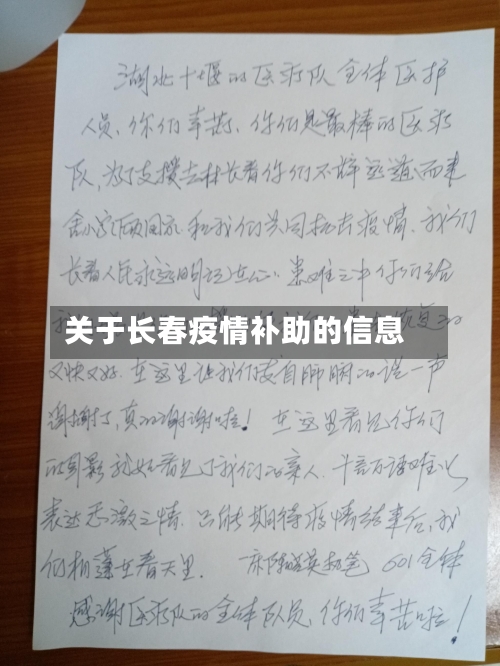 湖北十堰的医疗队全体医护
人员、你们辛苦、你们是最棒的医疗
队,为了支援吉林长春你们不辞远道而来
舍小家顾国家和我们共同抗击疫情.我们
长春人民永远明记在心.患难之中你们给
关于长春疫情补助的信息
又快又好.在这里让我们发自肺腑的说一声
谢谢了,真的谢谢啦!在这里看见你们
的身影就如看见了我们的亲人.千言万语难以
表达感激之情.只能期待疫情结束后,我
们相逢在春天里. 601全体
感谢医疗队的全体队员、你们辛苦啦!